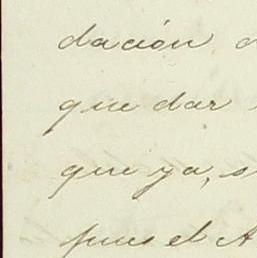 dación
que dar
que ya, s
pues el A